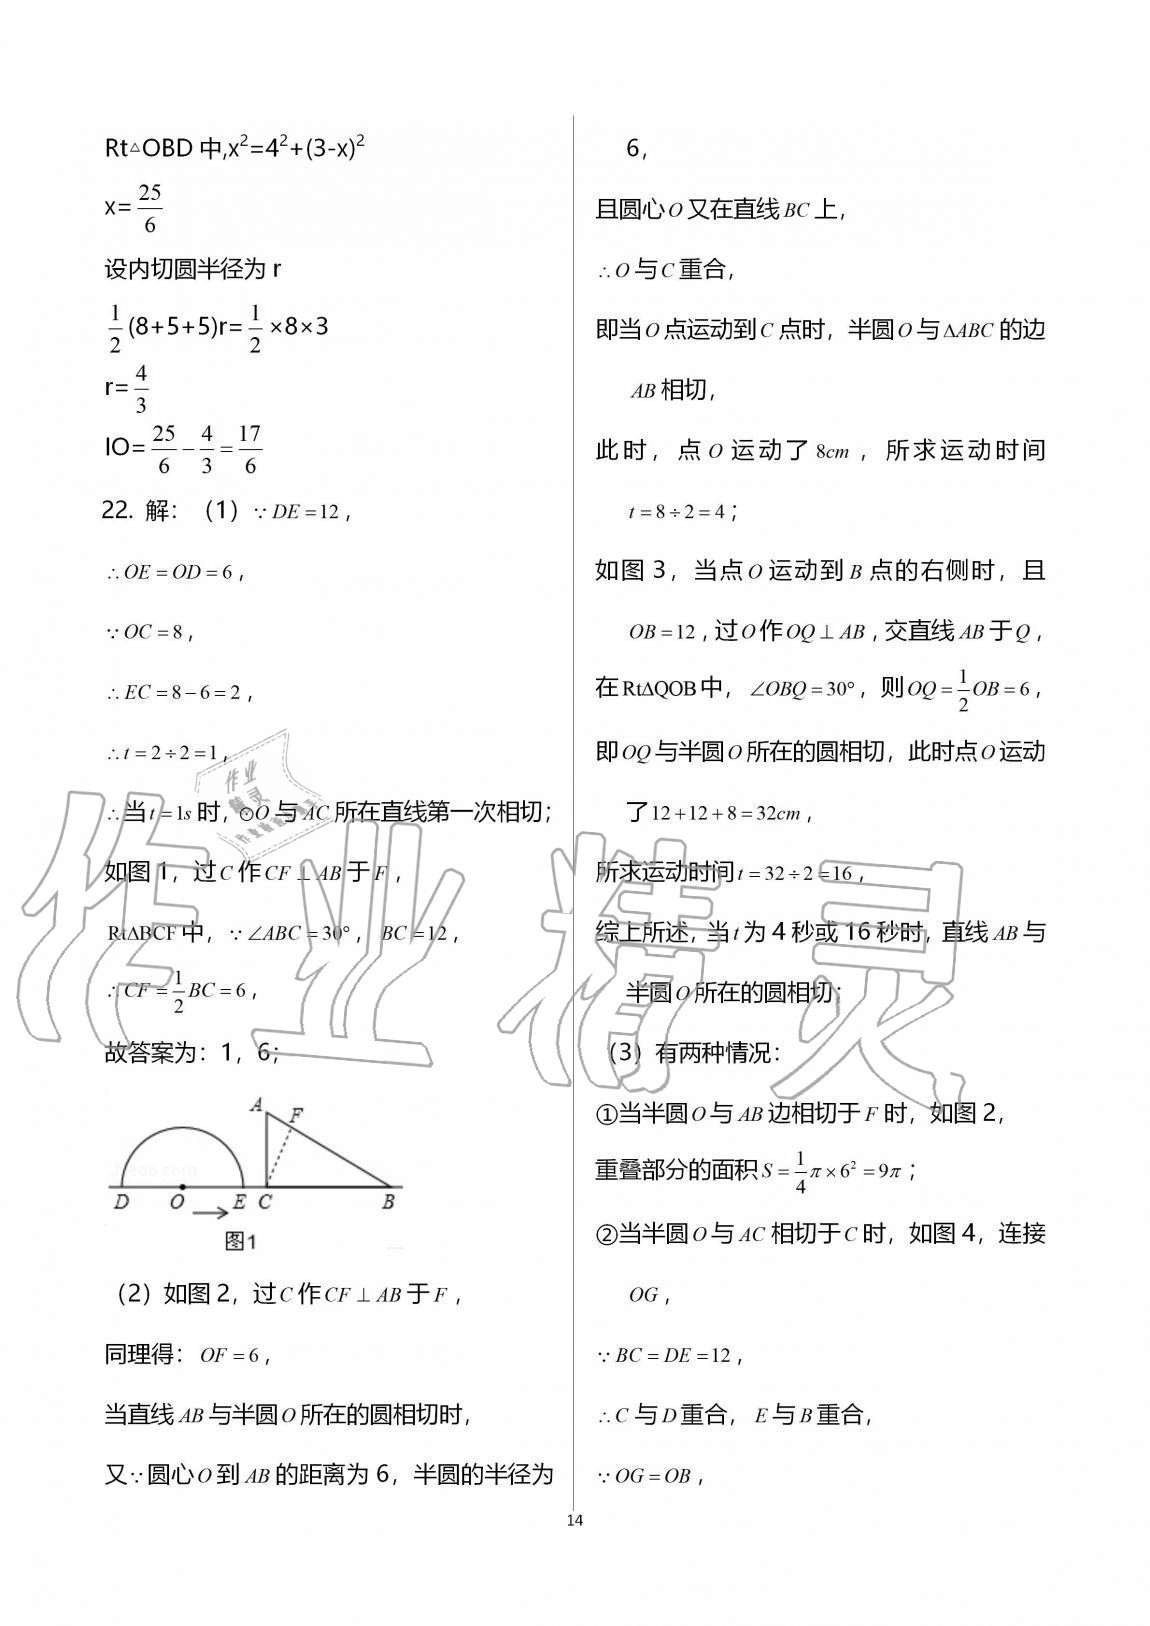 Rt△OBD 中,x²=4²+(3-x)²
x=25/6
设内切圆半径为 r
1/2(8+5+5)r=1/2×8×3
r=4/3
IO=25/6−4/3=17/6
22. 解：（1）∵DE=12，
∴OE=OD=6，
∵OC=8，
∴EC=8−6=2，
∴t=2÷2=1，
∴当t=1s时，⊙O与AC所在直线第一次相切；
如图 1，过C作CF⊥AB于F，
Rt∆BCF中，∵∠ABC=30°，BC=12，
∴CF=1/2BC=6，
故答案为：1，6；
A
F
D
O
E
C
B
图1
（2）如图 2，过C作CF⊥AB于F，
同理得：OF=6，
当直线AB与半圆O所在的圆相切时，
又∵圆心O到AB的距离为 6，半圆的半径为
6，
且圆心O又在直线BC上，
∴O与C重合，
即当O点运动到C点时，半圆O与∆ABC的边
AB相切，
此时，点O运动了8cm，所求运动时间
t=8÷2=4；
如图 3，当点O运动到B点的右侧时，且
OB=12，过O作OQ⊥AB，交直线AB于Q，
在Rt∆QOB中，∠OBQ=30°，则OQ=1/2OB=6，
即OQ与半圆O所在的圆相切，此时点O运动
了12+12+8=32cm，
所求运动时间t=32÷2=16，
综上所述，当t为 4 秒或 16 秒时，直线AB与
半圆O所在的圆相切；
（3）有两种情况：
①当半圆O与AB边相切于F时，如图 2，
重叠部分的面积S=1/4π×6²=9π；
②当半圆O与AC相切于C时，如图 4，连接
OG，
∵BC=DE=12，
∴C与D重合，E与B重合，
∵OG=OB，
14
作业精灵